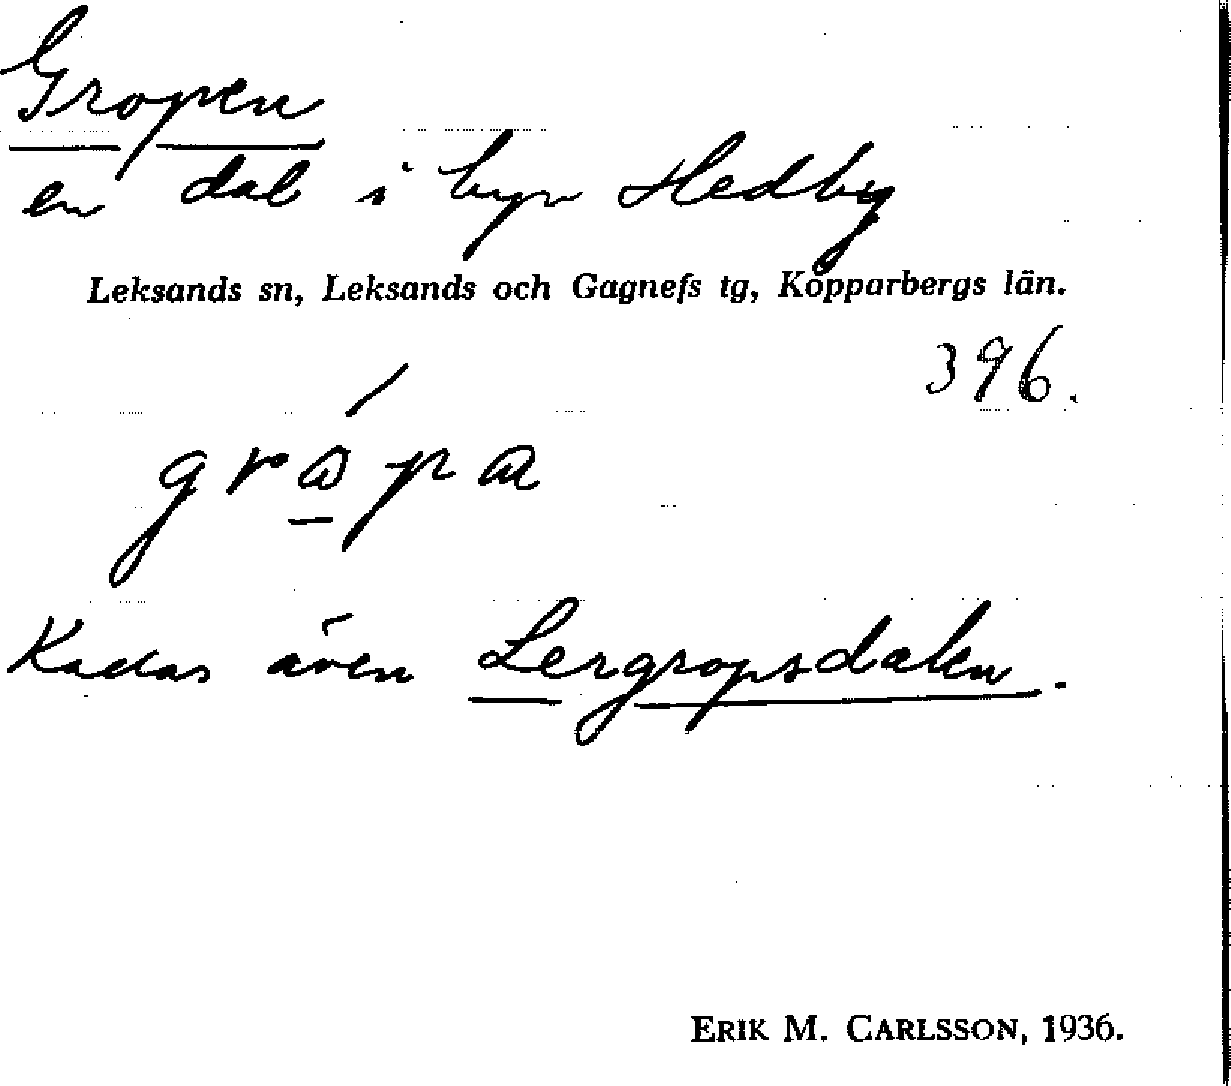 Gropen
en dal i byn Hedby
Leksands sn, Leksands och Gagnefs tg, Kopparbergs län.
396.
Kallas även Lergropsdalen.
ERIK M. CARLSSON, 1936.